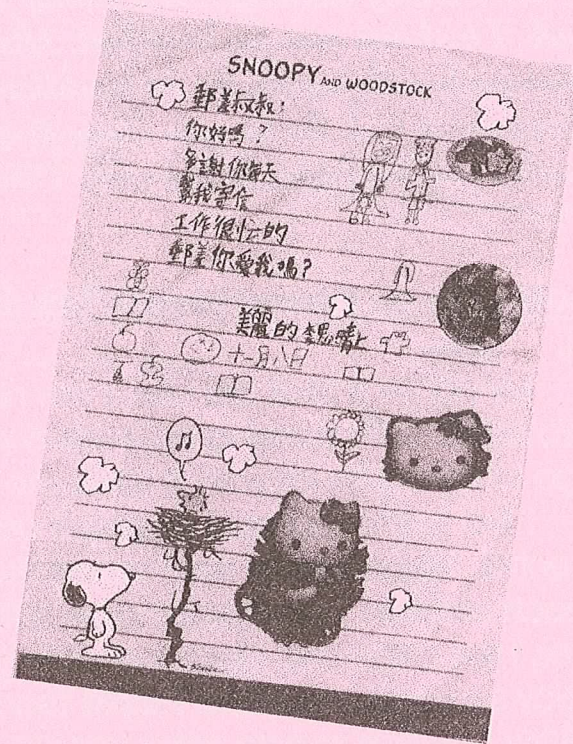 SNOOPY AND WOODSTOCK
郵差叔叔：
你好嗎？
多謝你每天
幫我寄信
工作很忙的
郵差你愛我嗎？
美麗的李思晴上
十一月八日